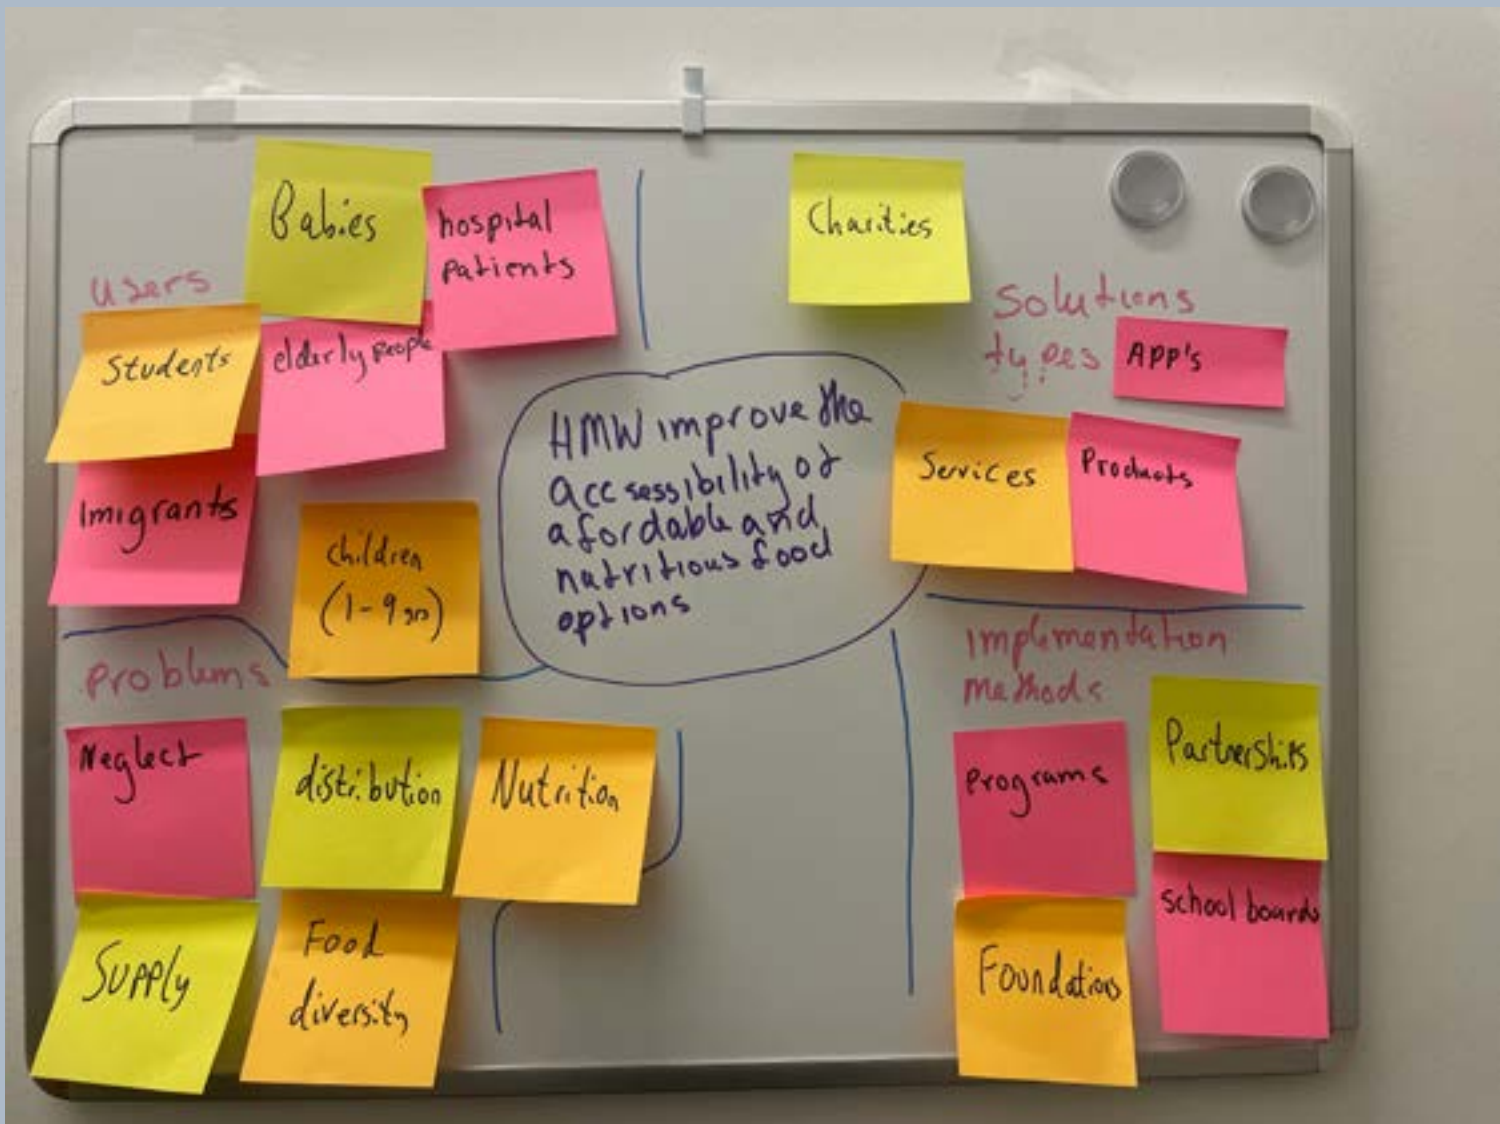 Users
Babies
hospital
patients
Students
elderly people
Imigrants
children
(1-9 yrs)
HMW improve the
accsessibility of
afordable and
nutritious food
options
Charities
Solutions
types
APP's
Services
Products
Problems
Neglect
distribution
Nutrition
Supply
Food
diversity
Implementation
Methods
Programs
Partnerships
Foundations
school boards